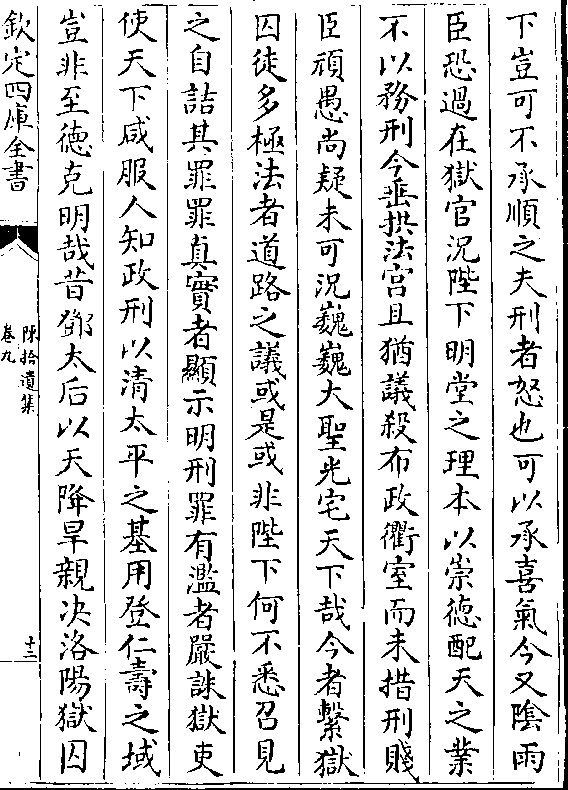 下豈可不承順之夫刑者怒也可以承喜氣今又陰雨
臣恐過在獄官況陛下明堂之理本以崇德配天之業
不以務刑今垂拱法宮且猶議殺布政衢室而未措刑賤
臣頑愚尚疑未可況巍巍大聖光宅天下哉今者繫獄
囚徒多極法者道路之議或是或非陛下何不悉召見
之自詰其罪罪真實者顯示明刑罪有濫者嚴誅獄吏
使天下咸服人知政刑以清太平之基用登仁壽之域
豈非至德克明哉昔鄧太后以天降旱親决洛陽獄囚
欽定四庫全書
陳拾遺集
卷九
十三